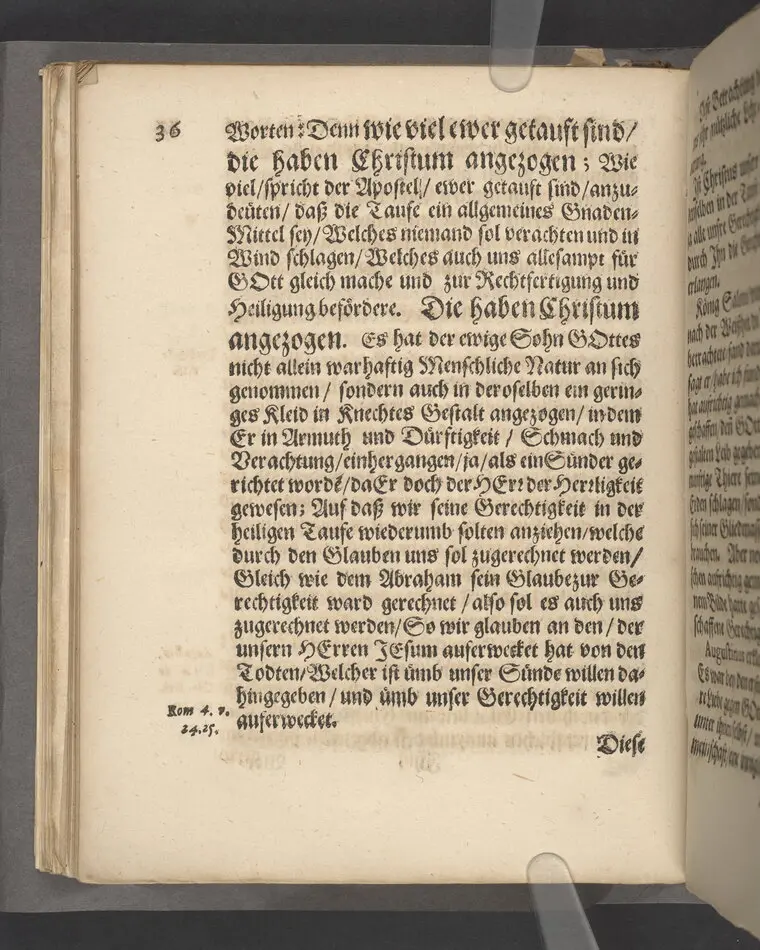 36
Worten: Denn wie viel ewer getauft sind/
die haben Christum angezogen; Wie
viel/spricht der Apostel/ ewer getauft sind/anzu-
deüten/ daß die Taufe ein allgemeines Gnaden-
Mittel sey/Welches niemand sol verachten und in
Wind schlagen/Welches auch uns allesampt für
GOtt gleich mache und zur Rechtfertigung und
Heiligung befördere. Die haben Christum
angezogen. Es hat der ewige Sohn GOttes
nicht allein warhaftig Menschliche Natur an sich
genommen/ sondern auch in deroselben ein gerin-
ges Kleid in Knechtes Gestalt angezogen/ indem
Er in Armuth und Dürftigkeit/ Schmach und
Verachtung/einhergangen/ja/als ein Sünder ge-
richtet wordē/da Er doch der HErr der Herrligkeit
gewesen; Auf daß wir seine Gerechtigkeit in der
heiligen Taufe wiederumb solten anziehen/welche
durch den Glauben uns sol zugerechnet werden/
Gleich wie dem Abraham sein Glaube zur Ge-
rechtigkeit ward gerechnet/also sol es auch uns
zugerechnet werden/So wir glauben an den/ der
unsern HErren JEsum auferwecket hat von den
Todten/Welcher ist ümb unser Sünde willen da-
hingegeben/und ümb unser Gerechtigkeit willen
auferwecket.
Rom 4. v.
24.25.
Diese